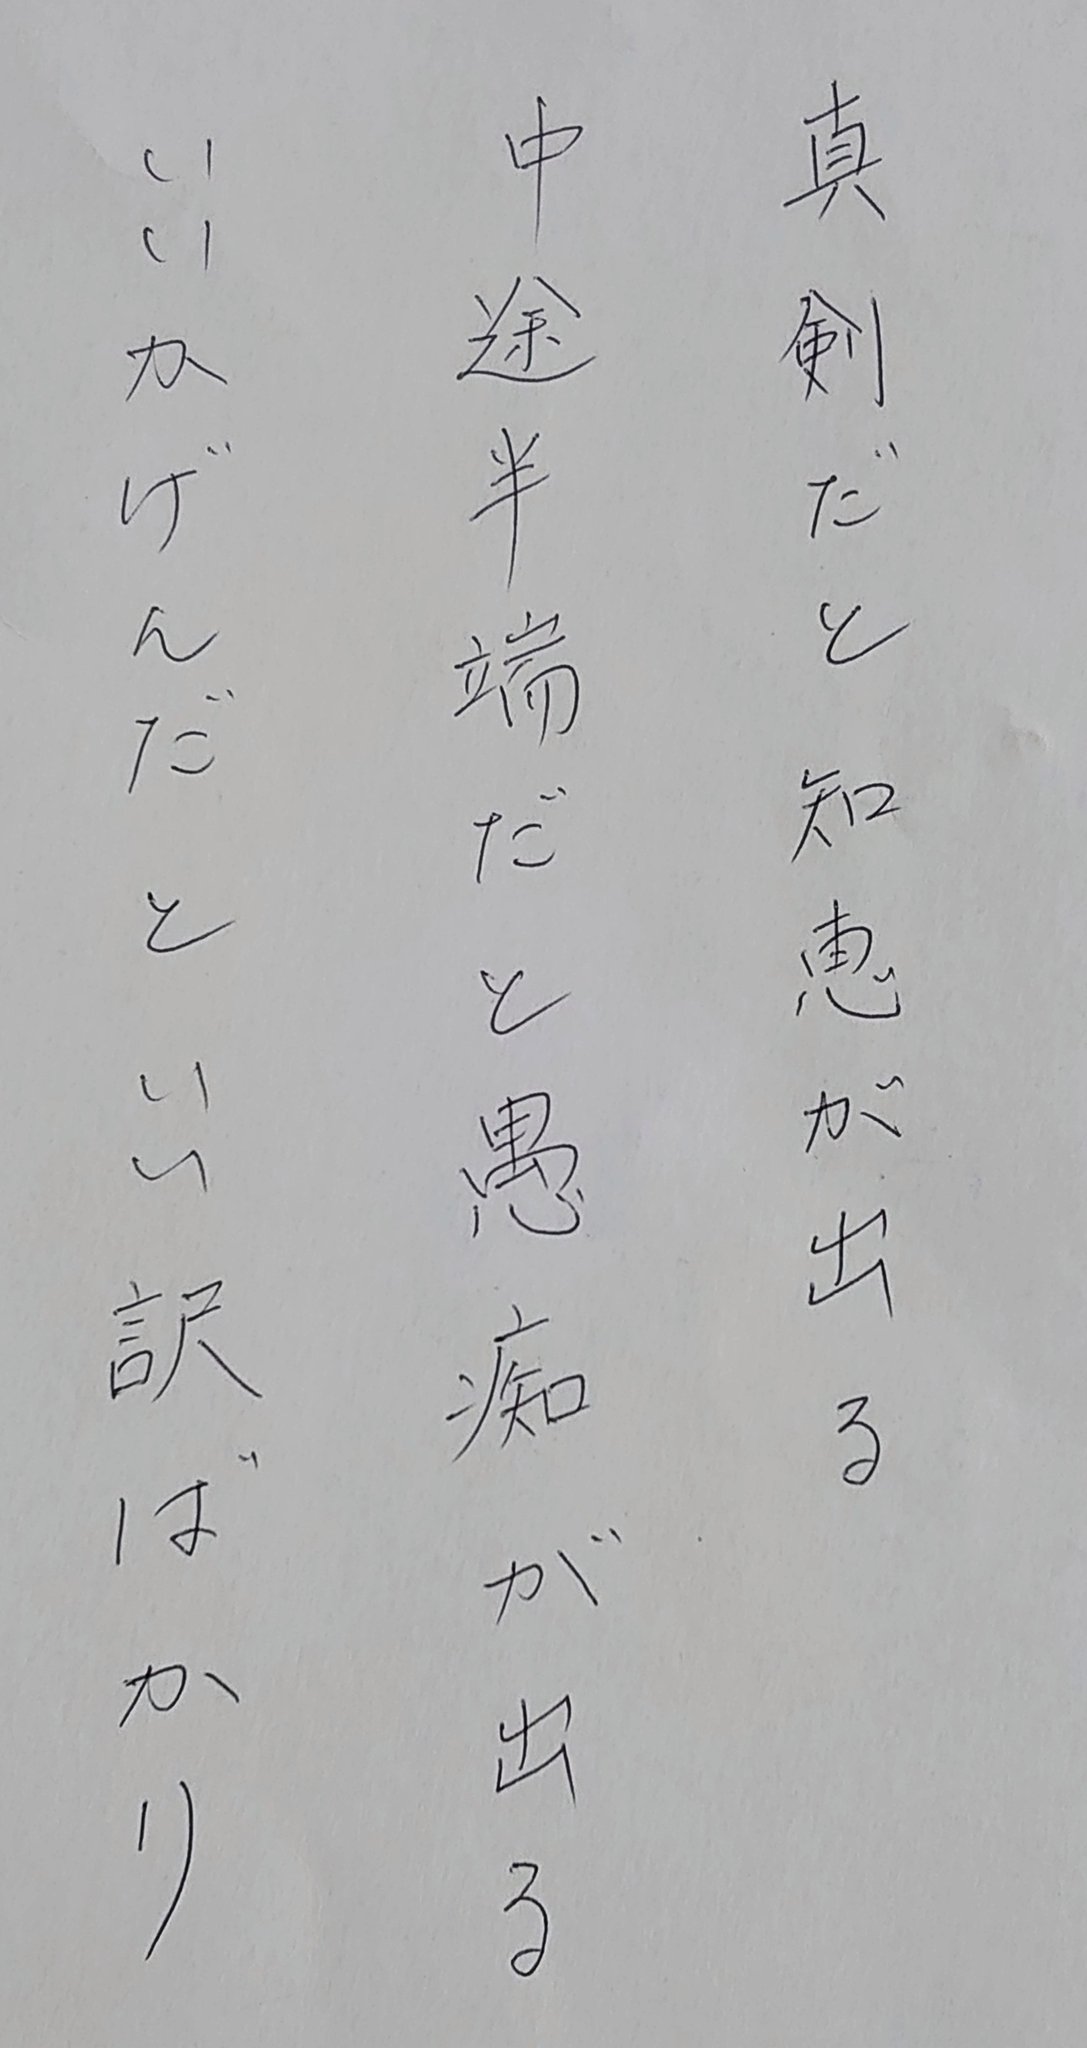 真剣だと知恵が出る
中途半端だと愚痴が出る
いいかげんだといい訳ばかり